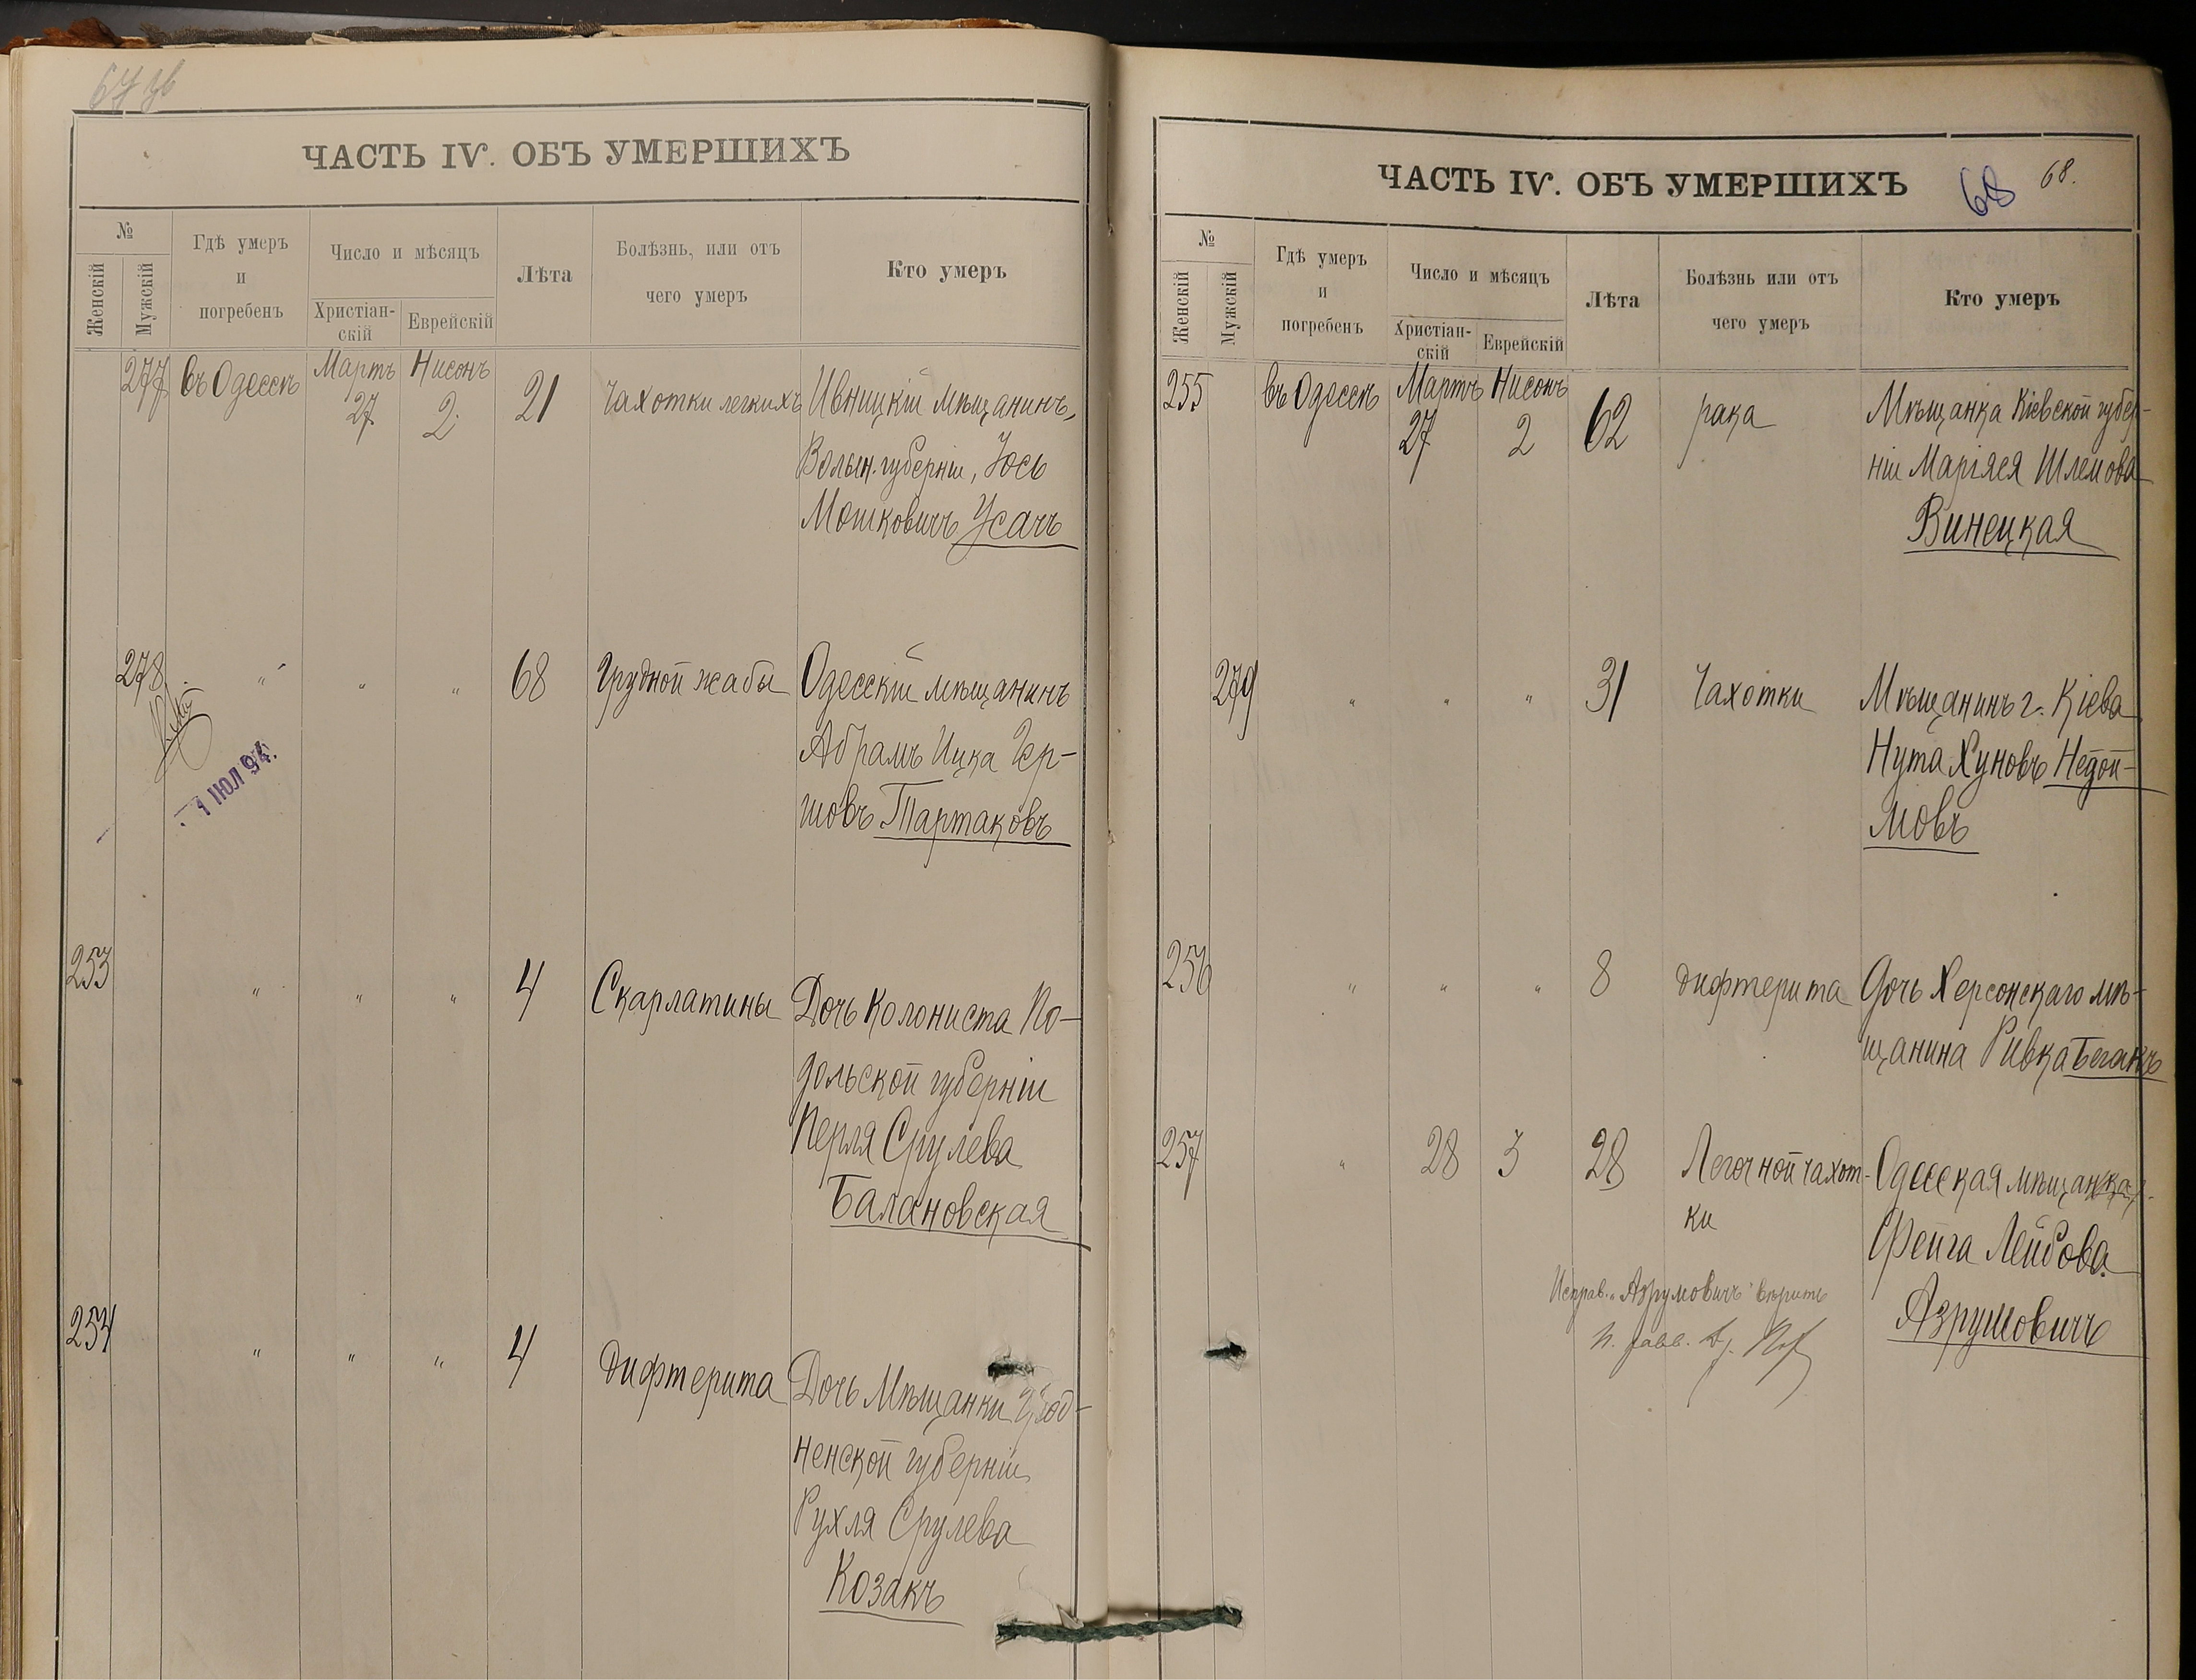 ЧАСТЬ IV. ОБЪ УМЕРШИХЪ
№
Женскій
Мужскій
Гдѣ умеръ
и
погребенъ
Число и мѣсяцъ
Христіан-
скій
Еврейскій
Лѣта
Болѣзнь, или отъ
чего умеръ
Кто умеръ
277 въ Одессѣ Мартъ 27 Нисонъ 2 21 Чахотки легкихъ Ивницкій мѣщанинъ,
Волын. губерніи, Іось
Мошковичъ Усачъ
278 " " " 68 Грудной жабы Одесскій мѣщанинъ
Абрамъ Ицка Гер-
шовъ Тартаковъ
1 ІЮЛ 94.
253 " " " 4 Скарлатины Дочь Колониста По-
дольской губерніи
Перля Срулева
Балановская
254 " " " 4 Дифтерита Дочь Мѣщанки Грод-
ненской губерніи
Рухля Срулева
Козакъ
ЧАСТЬ IV. ОБЪ УМЕРШИХЪ
68 68.
№
Женскій
Мужскій
Гдѣ умеръ
и
погребенъ
Число и мѣсяцъ
Христіан-
скій
Еврейскій
Лѣта
Болѣзнь или отъ
чего умеръ
Кто умеръ
255 въ Одессѣ Мартъ 27 Нисонъ 2 62 рака Мѣщанка Кіевской губер-
ніи Маріяся Шлемова
Винецкая
279 " " " 31 Чахотки Мѣщанинъ г. Кіева
Нута Хуновъ Недой-
мовъ
256 " " " 8 дифтерита Дочь Херсонскаго мѣ-
щанина Ривка Беганъ
257 " 28 3 28 Легочной чахот- Одесская мѣщанка
ки
Фейга Лейбова
Исправ. "Азрумовичъ" вѣрить
Азрумовичъ